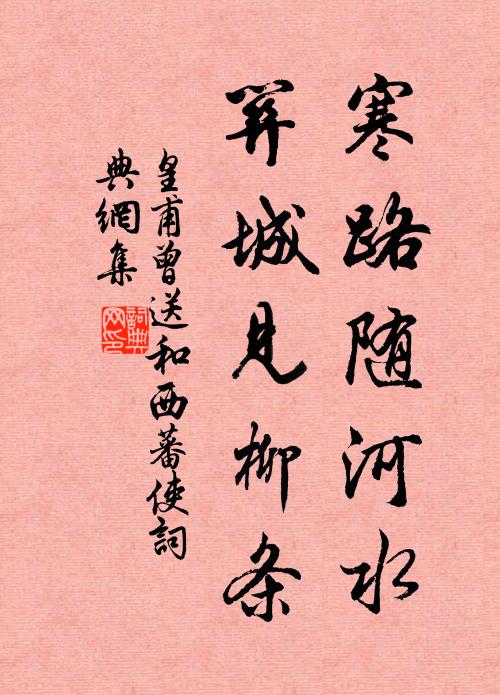 寒路随河水
关城見柳条
皇甫曾送和西蕃使詞
典網集
詞典
网印